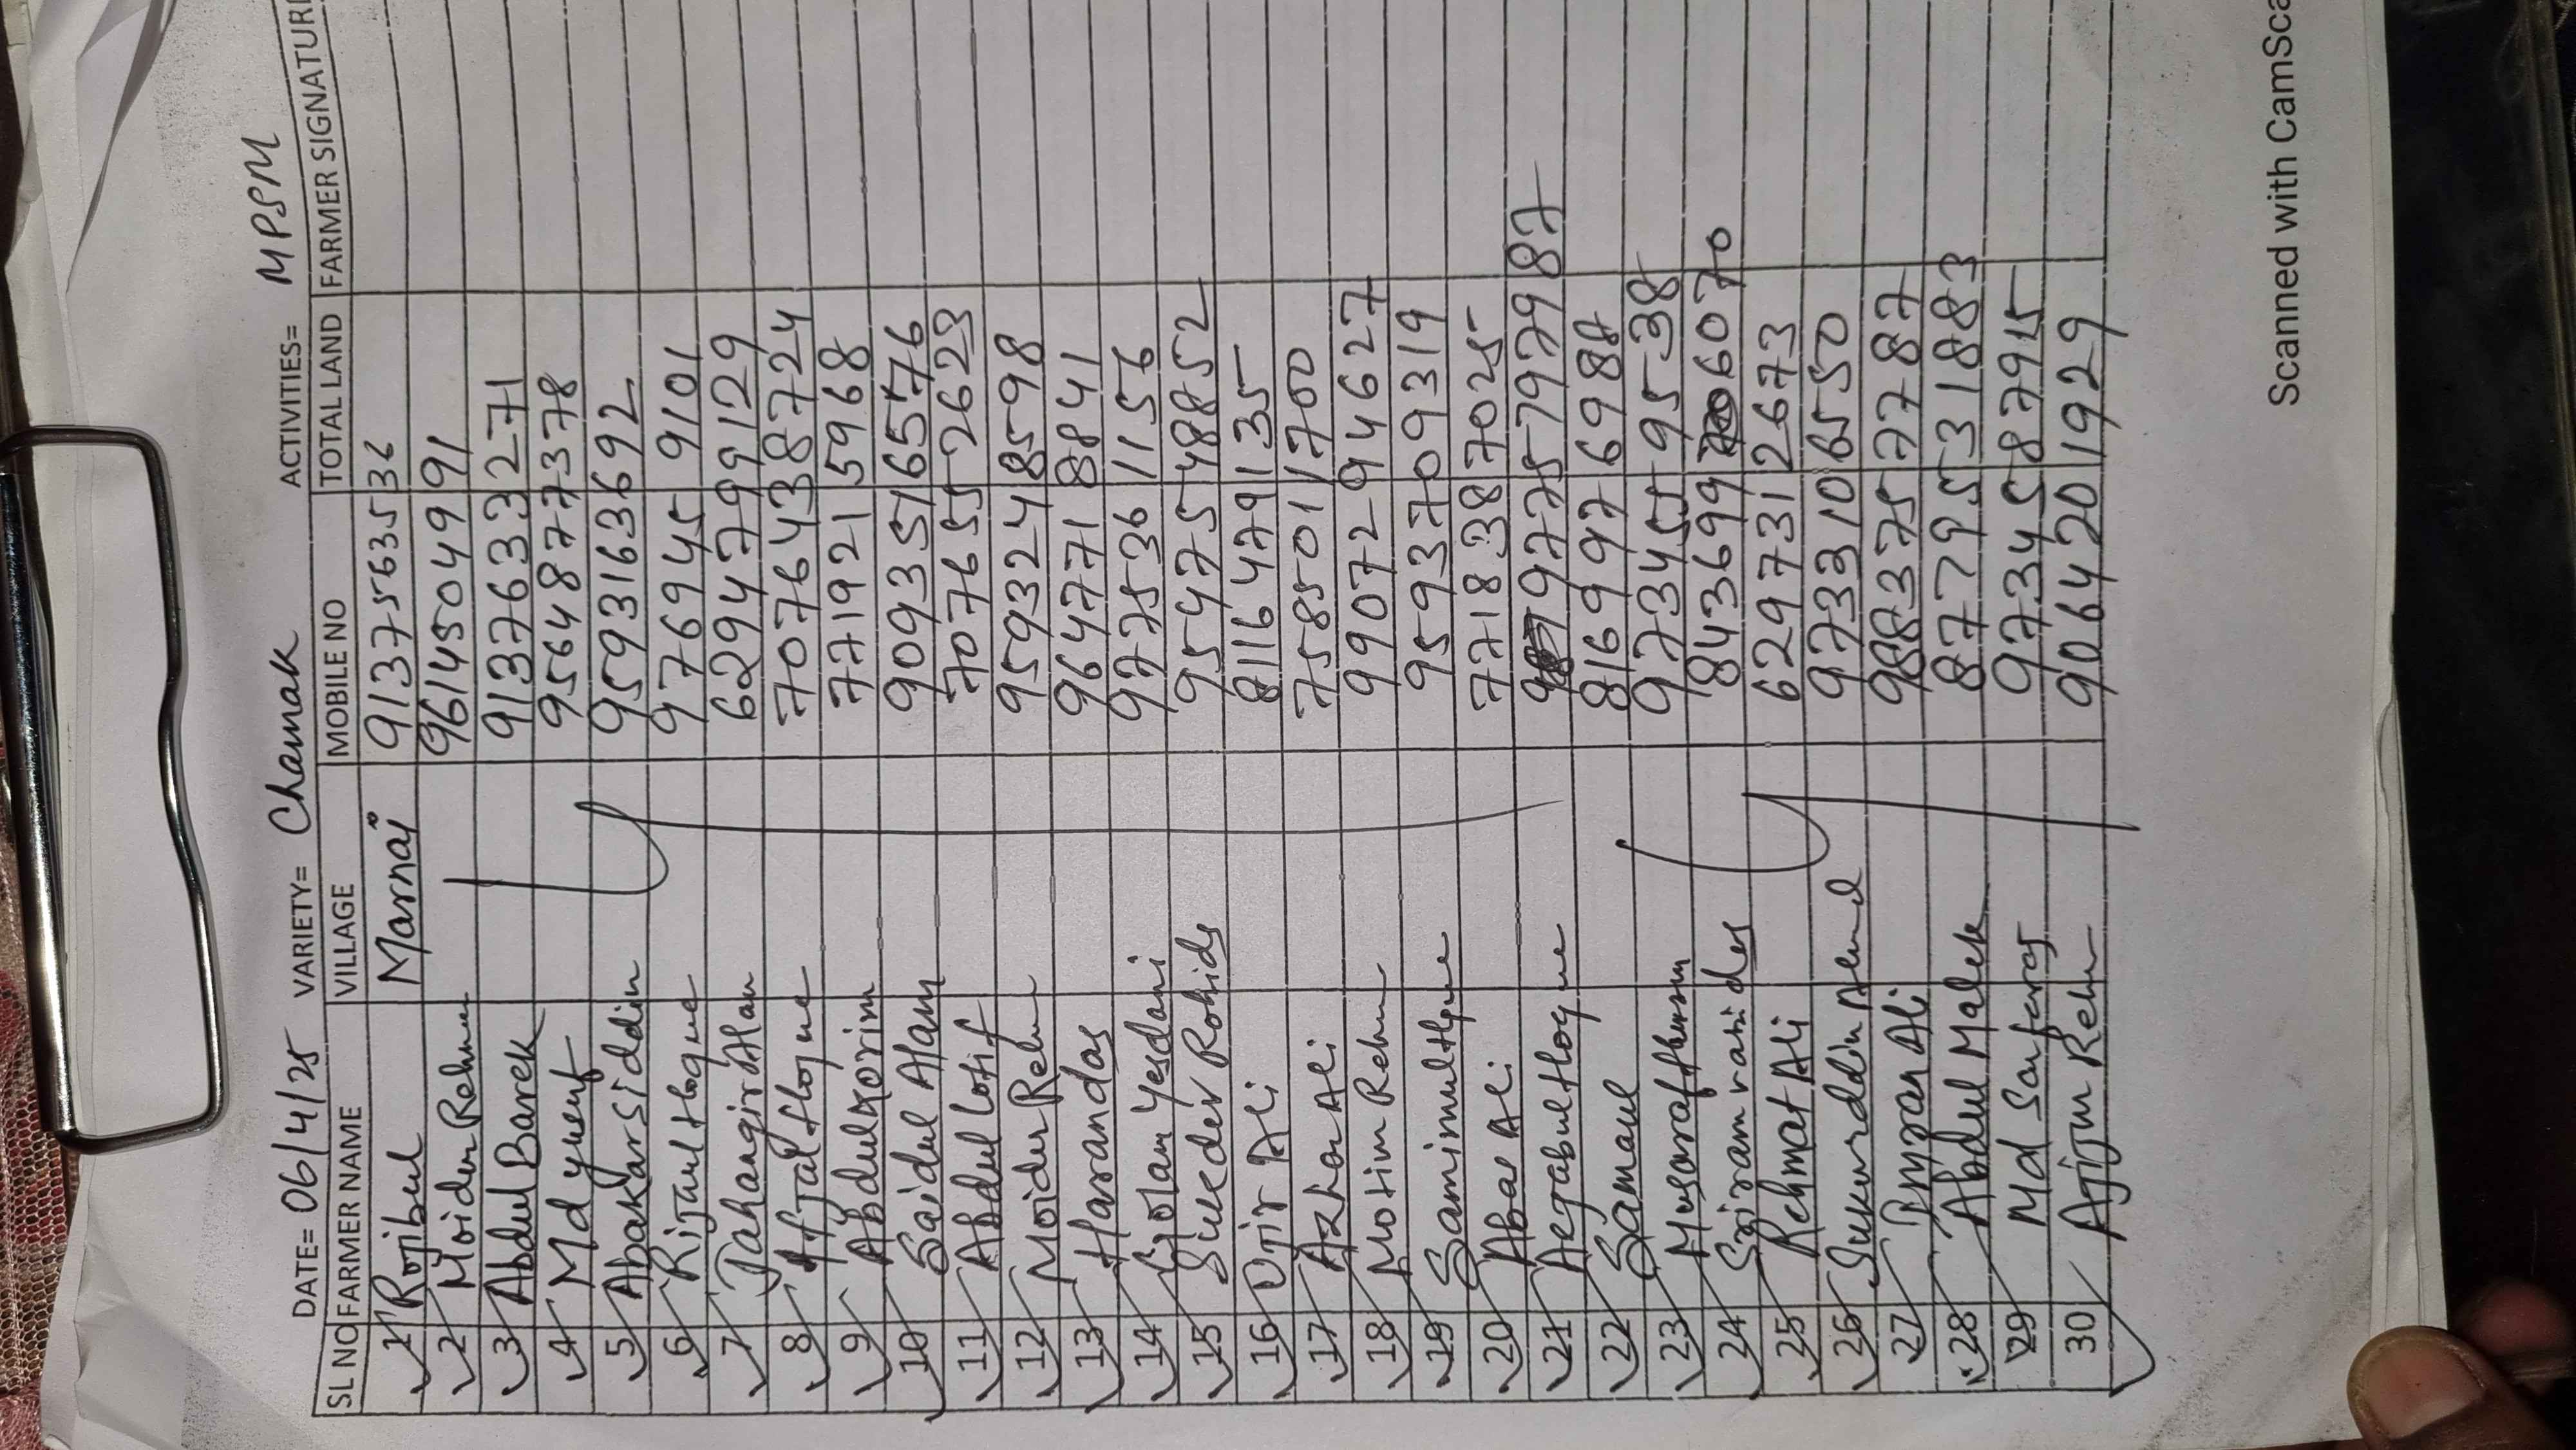 DATE= 06/4/25 VARIETY= Chamak ACTIVITIES= MPSM
SL NO FARMER NAME VILLAGE MOBILE NO TOTAL LAND FARMER SIGNATURE
1 Rojibul Marnai 9137563536
2 Moidur Rehmn 9614504991
3 Abdul Barek 9137633271
4 Md yusuf 9564877378
5 Abakarsiddin 9593163692
6 Rijaul Hoque 9776945 9101
7 Jahangir Alam 6294799129
8 Afjal Hoque 7076438724
9 Abdul Korim 7719215968
10 Saidul Alam 9093516576
11 Abdul Lotif 7076552623
12 Moidur Rehn 9593248598
13 Haran das 9647718841
14 Golam Yesdani 9775361156
15 Sukdev Robids 9547548852
16 Ojir Ali 8116479135
17 Azhar Ali 7585011700
18 Motim Rehmn 9907294627
19 Samimul Hque 9593709319
20 Abas Ali 7718387025
21 Aejabul Hoque 9775799887
22 Samaul 8169976988
23 Musaraf Hossn 9734559538
24 Sriram rabi das 8436996070
25 Rehmat Ali 6297312673
26 Sukurddin Ahmd 9733106550
27 Ali 9883757787
28 Abdul Malek 8779531883
29 Md Sarfaraj 9734587915
30 Ajijur Rehn 9064201929
Scanned with CamSca